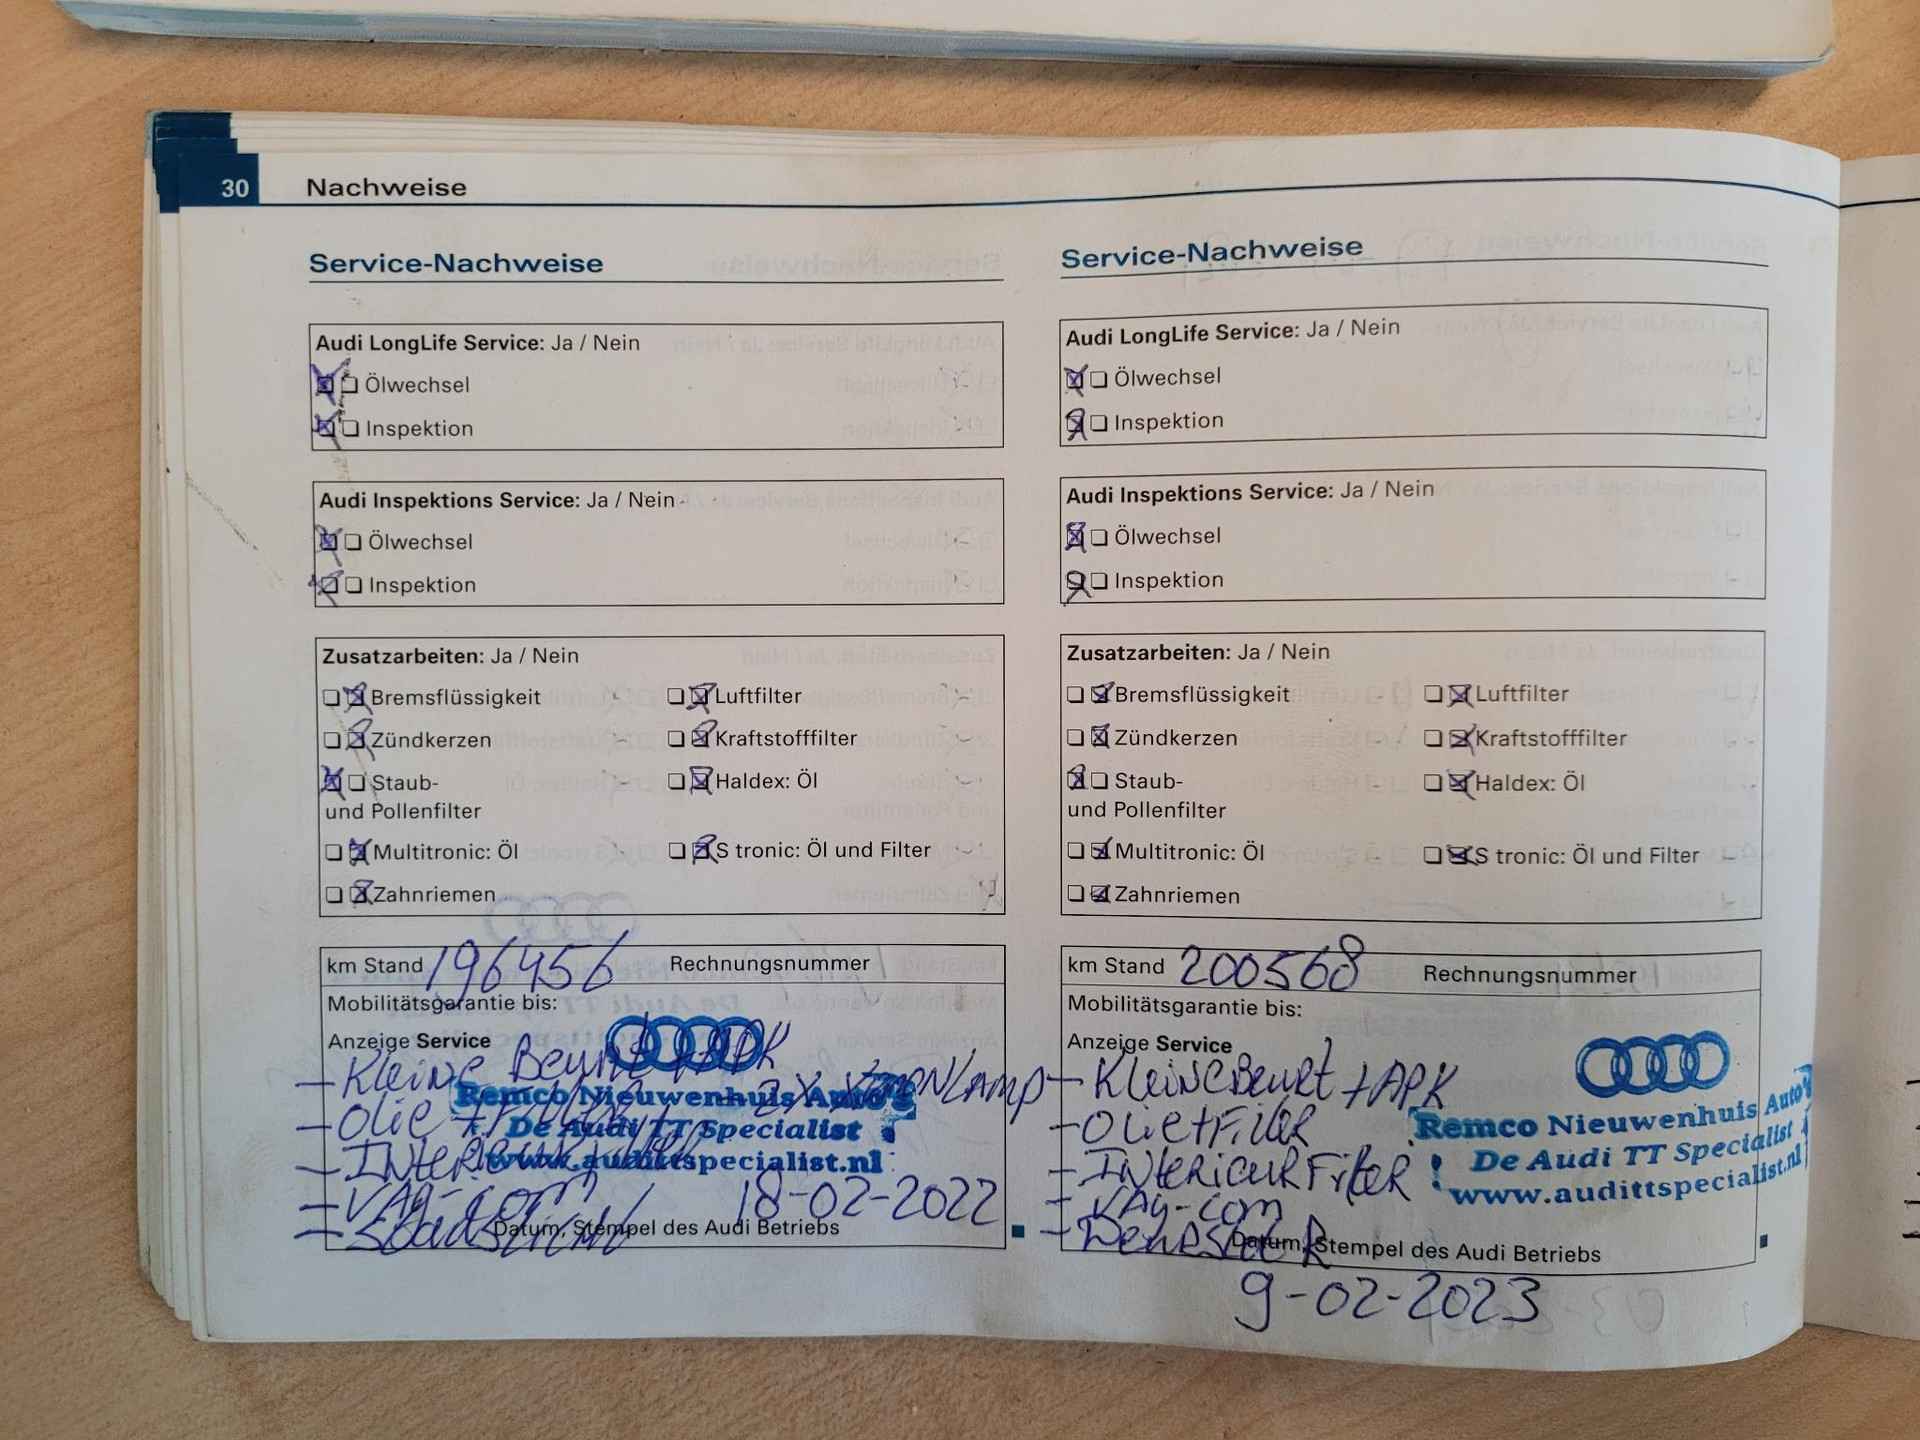 30 Nachweise
Service-Nachweise
Audi LongLife Service: Ja / Nein
Ölwechsel
Inspektion
Audi Inspektions Service: Ja / Nein
Ölwechsel
Inspektion
Zusatzarbeiten: Ja / Nein
Bremsflüssigkeit Luftfilter
Zündkerzen Kraftstofffilter
Staub- Haldex: Öl
und Pollenfilter
Multitronic: Öl S tronic: Öl und Filter
Zahnriemen
km Stand 196456 Rechnungsnummer
Mobilitätsgarantie bis:
Anzeige Service
- Kleine Beurt + APK
Remco Nieuwenhuis Auto's
- Olie + Filter - 2x xenonlamp
De Audi TT Specialist !
- Interieurfilter
www.audittspecialist.nl
- VAG-com 18-02-2022
Datum, Stempel des Audi Betriebs
Service-Nachweise
Audi LongLife Service: Ja / Nein
Ölwechsel
Inspektion
Audi Inspektions Service: Ja / Nein
Ölwechsel
Inspektion
Zusatzarbeiten: Ja / Nein
Bremsflüssigkeit Luftfilter
Zündkerzen Kraftstofffilter
Staub- Haldex: Öl
und Pollenfilter
Multitronic: Öl S tronic: Öl und Filter
Zahnriemen
km Stand 200568 Rechnungsnummer
Mobilitätsgarantie bis:
Anzeige Service
- Kleine Beurt + APK
Remco Nieuwenhuis Auto's
- Olie + Filter
! De Audi TT Specialist !
- Interieur Filter
www.audittspecialist.nl
- VAG-com
Datum, Stempel des Audi Betriebs
9-02-2023